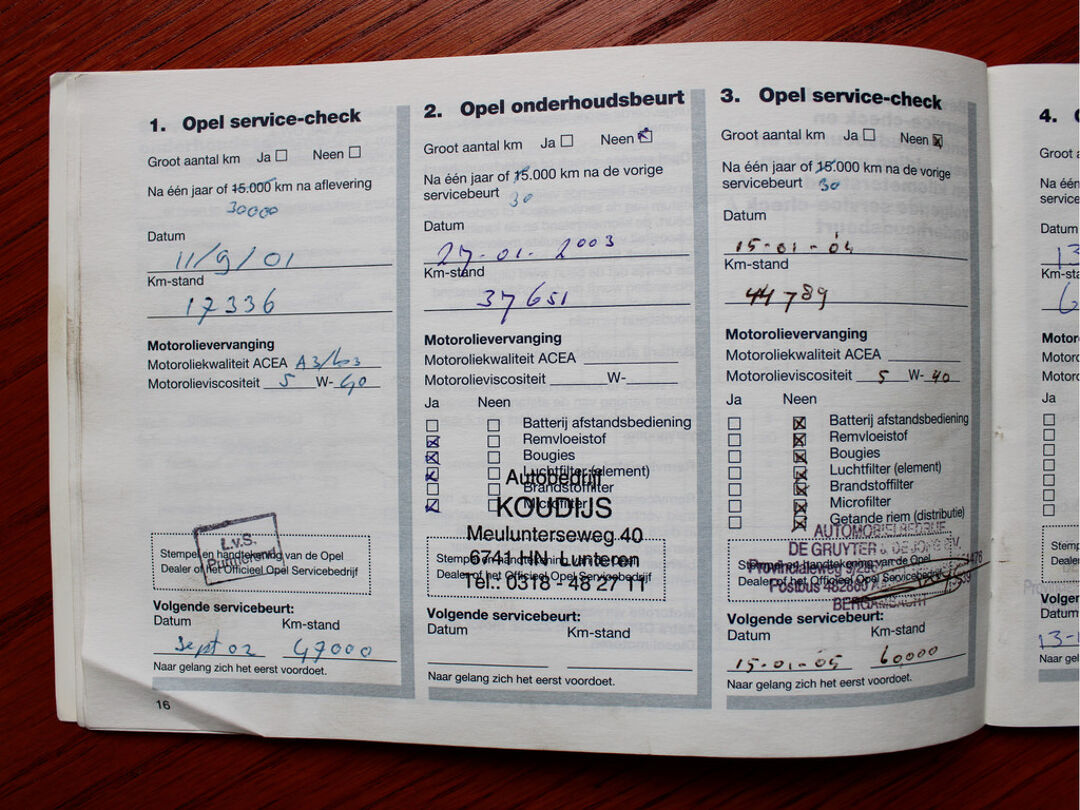 1. Opel service-check
Groot aantal km Ja ☐ Neen ☐
Na één jaar of 15.000 km na aflevering
30000
Datum
11/9/01
Km-stand
17336
Motorolievervanging
Motoroliekwaliteit ACEA A3/b3
Motorolieviscositeit 5 W- 40
L.v.S.
Purmerend
Stempel en handtekening van de Opel
Dealer of het Officieel Opel Servicebedrijf
Volgende servicebeurt:
Datum Km-stand
Sept 02 47000
Naar gelang zich het eerst voordoet.
16
2. Opel onderhoudsbeurt
Groot aantal km Ja ☐ Neen ☒
Na één jaar of 15.000 km na de vorige
servicebeurt 30
Datum
27-01-2003
Km-stand
37651
Motorolievervanging
Motoroliekwaliteit ACEA
Motorolieviscositeit W-
Ja Neen
☐ ☐ Batterij afstandsbediening
☒ ☐ Remvloeistof
☒ ☐ Bougies
☒ ☐ Luchtfilter (element)
☐ ☐ Brandstoffilter
☒ ☐ Microfilter
Autobedrijf
KOUDIJS
Meulunterseweg 40
6741 HN Lunteren
Tel.: 0318 - 48 27 11
Stempel en handtekening van de Opel
Dealer of het Officieel Opel Servicebedrijf
Volgende servicebeurt:
Datum Km-stand
Naar gelang zich het eerst voordoet.
3. Opel service-check
Groot aantal km Ja ☐ Neen ☒
Na één jaar of 15.000 km na de vorige
servicebeurt 30
Datum
15-01-04
Km-stand
44789
Motorolievervanging
Motoroliekwaliteit ACEA
Motorolieviscositeit 5 W- 40
Ja Neen
☐ ☒ Batterij afstandsbediening
☐ ☒ Remvloeistof
☐ ☒ Bougies
☐ ☒ Luchtfilter (element)
☐ ☒ Brandstoffilter
☐ ☒ Microfilter
☐ ☒ Getande riem (distributie)
AUTOMOBIELBEDRIJF
DE GRUYTER & DE JONG BV.
Provincialeweg
Postbus
BERGAMBACHT
Stempel en handtekening van de Opel
Dealer of het Officieel Opel Servicebedrijf
Volgende servicebeurt:
Datum Km-stand
15-01-05 60000
Naar gelang zich het eerst voordoet.
4.
Groot
Na één
service
Datum
13
Km-sta
6
Motor
Motor
Motor
Ja
Stemp
Dealer
Volger
Datum
13-
Naar gel